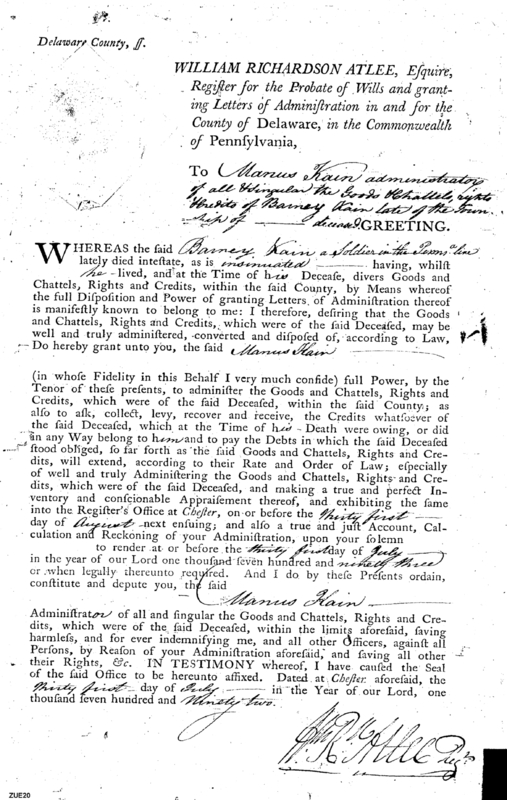 Delaware County, ſſ.
WILLIAM RICHARDSON ATLEE, Eſquire,
Regiſter for the Probate of Wills and grant-
ing Letters of Adminiſtration in and for the
County of Delaware, in the Commonwealth
of Pennſylvania,
To Manus Kain administrator
of all & Singular the Goods & Chattels, rights
& Credits of Barney Kain late of the Town-
ship of deceased GREETING.
WHEREAS the ſaid Barney Kain a Soldier in the Penns.a line
lately died inteſtate, as is insinuated having, whilſt
he lived, and at the Time of his Deceaſe, divers Goods and
Chattels, Rights and Credits, within the ſaid County, by Means whereof
the full Diſpoſition and Power of granting Letters of Adminiſtration thereof
is manifeſtly known to belong to me: I therefore, deſiring that the Goods
and Chattels, Rights and Credits, which were of the ſaid Deceaſed, may be
well and truly adminiſtered, converted and diſpoſed of, according to Law,
Do hereby grant unto you, the ſaid Manus Kain
(in whoſe Fidelity in this Behalf I very much confide) full Power, by the
Tenor of theſe preſents, to adminiſter the Goods and Chattels, Rights and
Credits, which were of the ſaid Deceaſed, within the ſaid County; as
alſo to aſk, collect, levy, recover and receive, the Credits whatſoever of
the ſaid Deceaſed, which at the Time of his Death were owing, or did
in any Way belong to him and to pay the Debts in which the ſaid Deceaſed
ſtood obliged, ſo far forth as the ſaid Goods and Chattels, Rights and Cre-
dits, will extend, according to their Rate and Order of Law; eſpecially
of well and truly Adminiſtering the Goods and Chattels, Rights and Cre-
dits, which were of the ſaid Deceaſed, and making a true and perfect In-
ventory and conſcionable Appraiſement thereof, and exhibiting the ſame
into the Regiſter's Office at Cheſter, on or before the thirty first
day of August next enſuing; and alſo a true and juſt Account, Cal-
culation and Reckoning of your Adminiſtration, upon your ſolemn
to render at or before the thirty first day of July
in the year of our Lord one thouſand ſeven hundred and ninety three
or when legally thereunto required. And I do by theſe Preſents ordain,
conſtitute and depute you, the ſaid
Manus Kain
Adminiſtrator of all and ſingular the Goods and Chattels, Rights and Cre-
dits, which were of the ſaid Deceaſed, within the limits aforeſaid, ſaving
harmleſs, and for ever indemnifying me, and all other Officers, againſt all
Perſons, by Reaſon of your Adminiſtration aforeſaid, and ſaving all other
their Rights, &c. IN TESTIMONY whereof, I have cauſed the Seal
of the ſaid Office to be hereunto affixed. Dated at Cheſter aforeſaid, the
thirty first day of July in the Year of our Lord, one
thouſand ſeven hundred and Ninety two.
Wm R. Atlee Reg.r
ZUE20